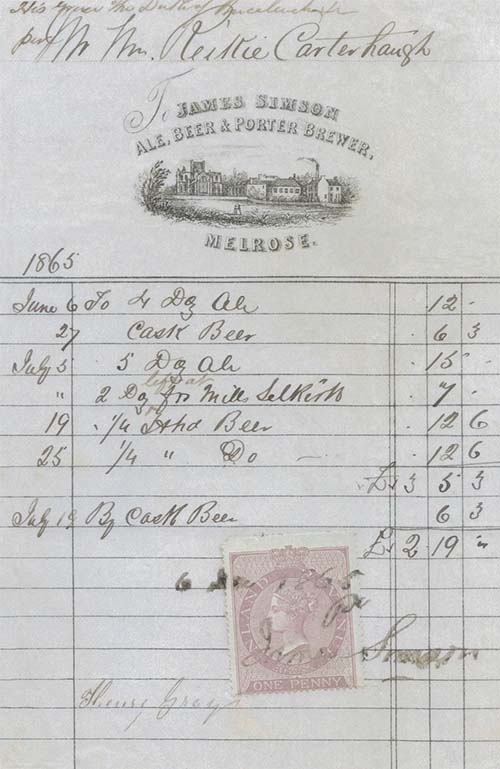 His Grace The Duke of Buccleuch
per Mr Wm. Keikie Carterhaugh
To JAMES SIMSON
ALE, BEER & PORTER BREWER,
MELROSE.
1865
June 6 To 4 Doz Ale . 12 -
27 Cask Beer . 6 3
July 5 5 Doz Ale . 15 -
left at
" 2 Doz for Mills Selkirk . 7 -
19 . 1/4 Hhd Beer . 12 6
25 1/4 " Do - . 12 6
£ 3 5 3
July 19 By Cask Beer 6 3
£ 2 19 "
6 1865
INLAND REVENUE
James Simson
ONE PENNY
Henry Grays